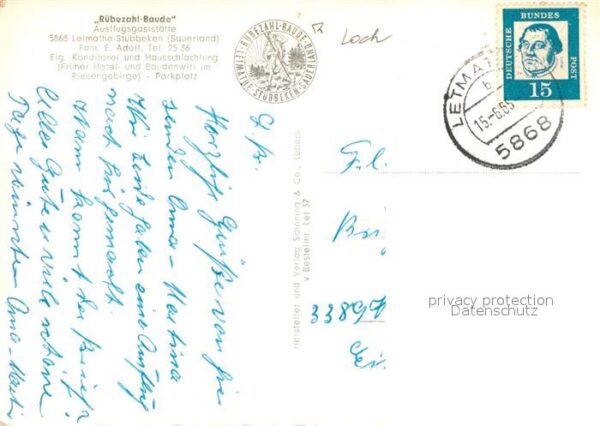 „Rübezahl-Baude"
Ausflugsgaststätte
5868 Letmathe-Stübbeken (Sauerland)
Fam. E. Adolf, Tel. 25 36
Eig. Konditorei und Hausschlachtung
(Früher Hotel- und Baudenwirt im
Riesengebirge) - Parkplatz
RÜBEZAHL-BAUDE
LETMATHE-STÜBBEKEN-SAUERLAND
Loch
DEUTSCHE BUNDESPOST
15
LETMATHE
b
15.-6.65
5868
Herzliche Grüße von hier
senden Oma - Martina
Wir beide haben einen Ausflug
nach hier gemacht.
Wann kommt der Brief?
Alles Gute u. viele schöne
Tage wünschen Oma-Martina
Hersteller und Verlag Schöning & Co., Lübeck
V Bestellnr. Let 37
Frl.
3389
privacy protection
Datenschutz